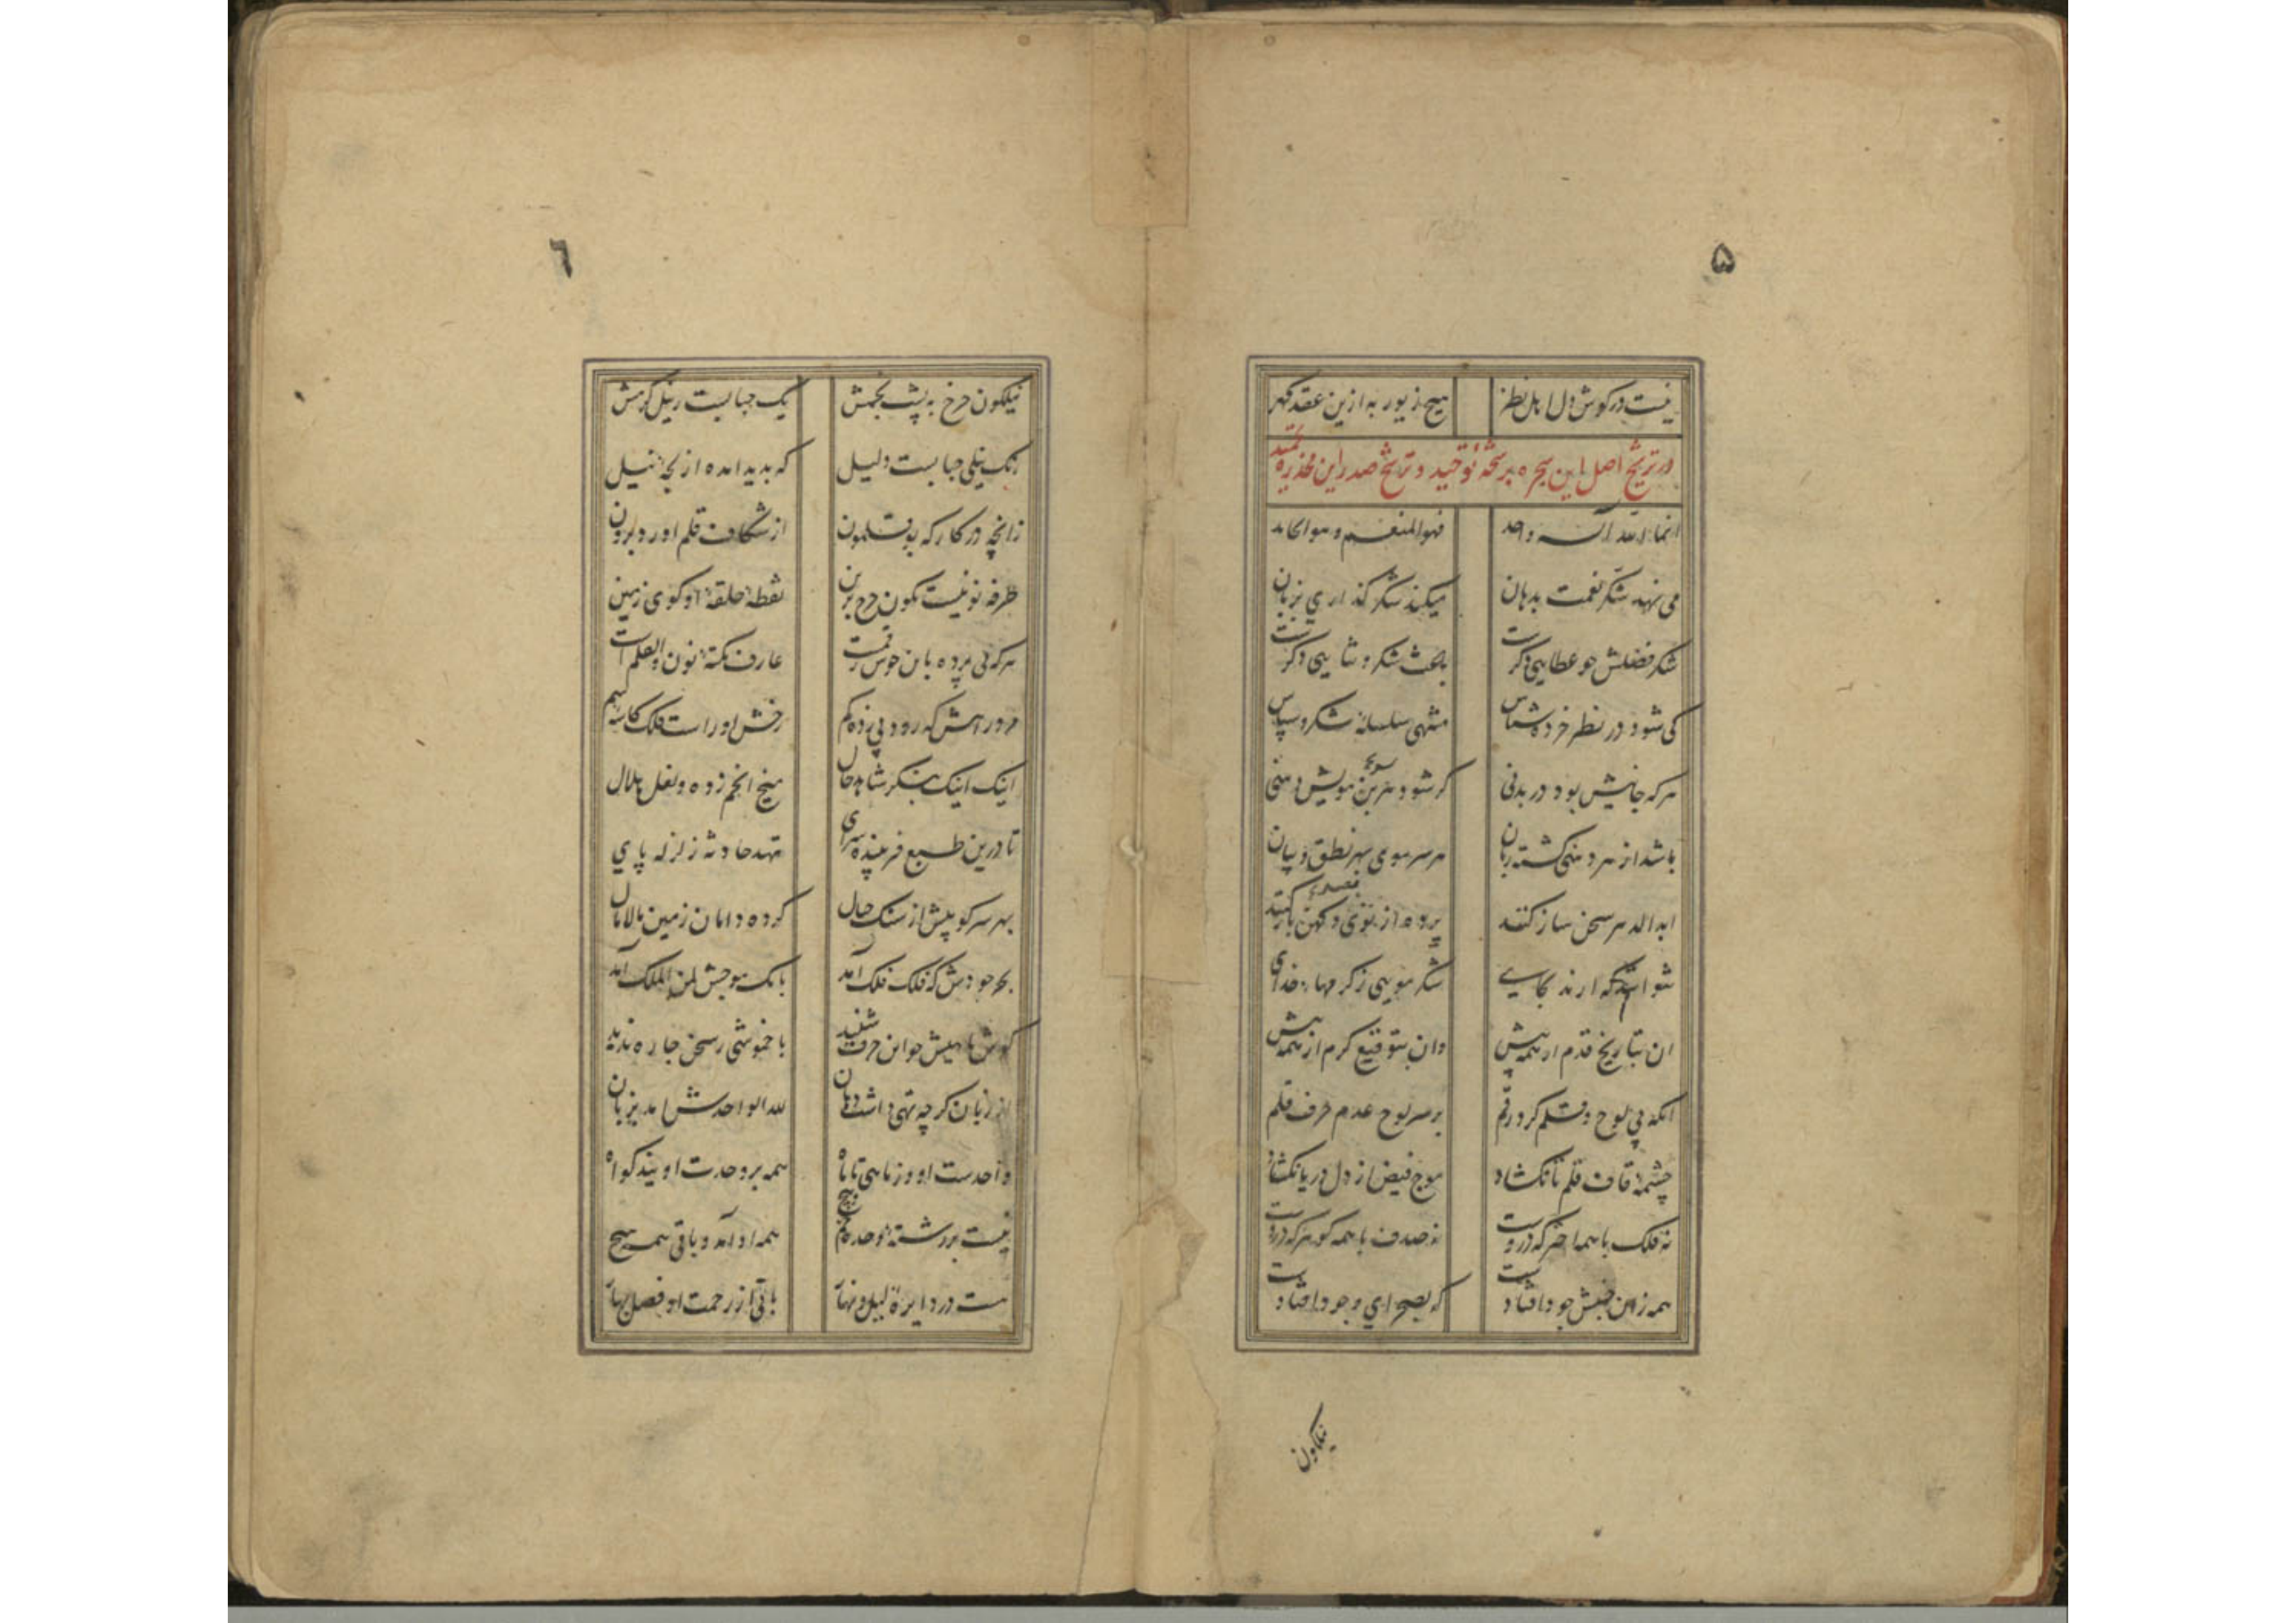 ۵
نیست در کوش دل اهل نظر هیچ زیور به ازین عقد کهر
در ترشیح اصل این سجره برشحهٔ توحید و ترشح صدر این مخدره
انما الله اله واحد فهو المنعم و هو الحامد
می نهد شکر نعمت بدهان میکند شکر گذاری بزبان
شکر فضلش جو عطایی دکرست باعث شکر و ثنایی دکرست
کی شود در نظر خرده شناس منتهی سلسلهٔ شکر و سپاس
هر که جانیش بود در بدنی کر شود هر بن مویش دهنی
باشد از هر دهنی کشته زبان هر سر موی بهر نطق و بیان
ابد الدهر سخن ساز کنند پرده از نوی و کهن باز کنند
نتوانند که ارند بجای شکر مویی ز کرمهای خدای
ان بتاریخ قدم از همه پیش وان بتوقیع کرم از همه بیش
انکه بی لوح و قلم کرد رقم بر سر لوح عدم حرف قلم
چشمهٔ قاف قلم تا نکشاد موج فیض از دل دریا نکشاد
نه فلک با همه اختر که دروست نه صدف با همه کوهر که دروست
همه زان جنبش جود افتادست که بصحرای وجود افتادست
نیلکون
٦
نیلکون چرخ به پشت بخمش یک حبابست ز نیل کرمش
رنک نیلی حبابست دلیل که بدید امده از لجهٔ نیل
زانچه در کارکه بوقلمون از شکاف قلم اورد برون
طرفه نونیست نکون چرخ برین نقطهٔ حلقهٔ او کوی زمین
هر که پی برده باین خوش رقمست عارف نکتهٔ نون والقلم است
در رهش که رود پی زده کم رخش اوراست فلک کاسهٔ سم
اینک اینک بنکر شاهد حال میخ انجم زده و نعل هلال
تا درین طبع فریبنده سرای نهد حادثه زلزله پای
بهر سرکوبیش از سنک جبال کرده دامان زمین مالامال
بحر جودش که فلک فلک آمد بانک موجش لمن الملک آمد
کوش ماهیش جو این حرف شنید با خموشی ز سخن چاره ندید
از زبان کرچه تهی داشت دهان لله الواحدش امد بزبان
واحدست او وز ماهی تا ماه همه بر وحدت اویند کواه
نیست بر رشتهٔ توحد خم و پیچ همه او آمد و باقی همه هیچ
هست در دایرهٔ لیل و نهار باقی از رحمت او فصل بهار